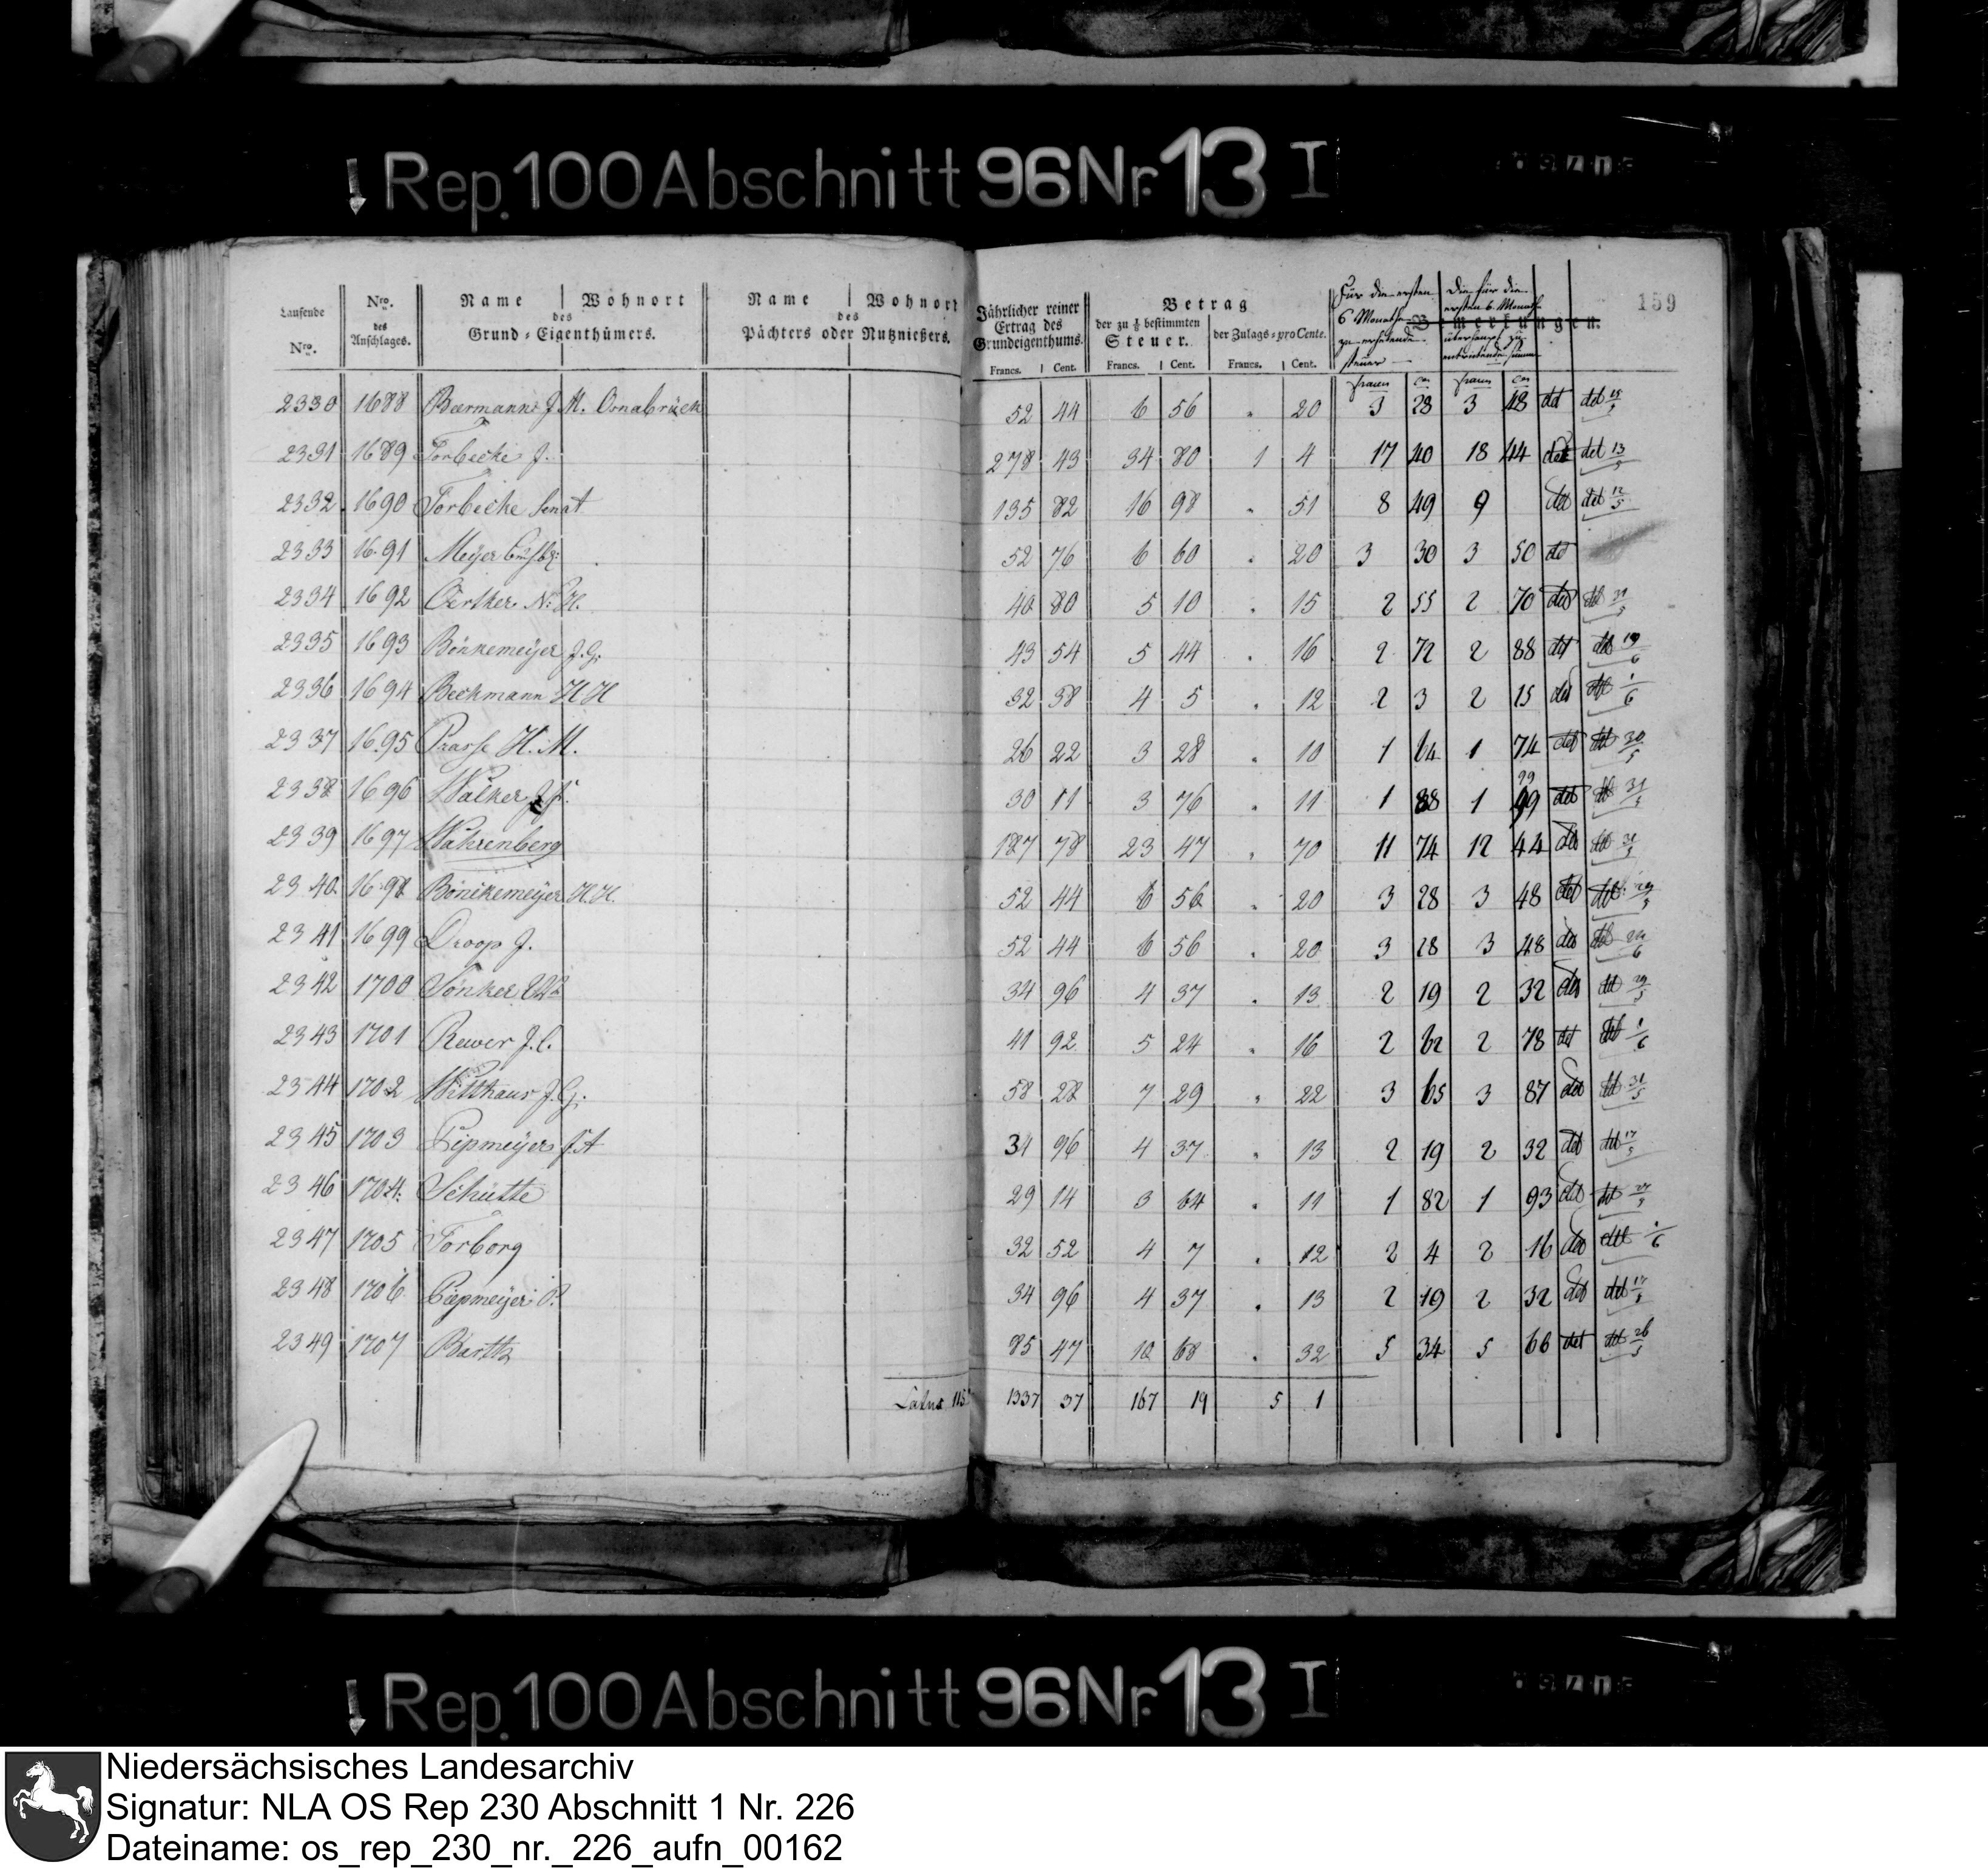 Rep. 100 Abschnitt 96 Nr. 13 I
159
Laufende Nro. Nro. des Anschlages. Name Wohnort des Grund-Eigenthümers. Name Wohnort des Pächters oder Nutznießers. Jährlicher reiner Ertrag des Grundeigenthums. Betrag der zu 1/8 bestimmten Steuer. der Zulags-pro Cente. Bemerkungen.
Für die ersten 6 Monathe zu erhebende Steuer
Die für die ersten 6 Monathe überhaupt zu entrichtende Summe
Francs. Cent. Francs. Cent. Francs. Cent. Francs Cen Francs Cen
2330 1688 Baermann J. M. Osnabrück 52 44 6 56 " 20 3 28 3 48 det det 15/5
2331 1689 Torbecke J. 278 43 34 80 1 4 17 40 18 44 det det 13/5
2332 1690 Torbecke Senat 135 82 16 98 " 51 8 49 9 det det 12/5
2333 1691 Meyer 52 76 6 60 " 20 3 30 3 50 det
2334 1692 Oertker N. H. 40 80 5 10 " 15 2 55 2 70 det det 31/5
2335 1693 Bönkemeÿer J. G. 43 54 5 44 " 16 2 72 2 88 det det 19/6
2336 1694 Beckmann H H 32 38 4 5 " 12 2 3 2 15 det det 1/6
2337 1695 Prasse H. M. 26 22 3 28 " 10 1 64 1 74 det det 30/5
2338 1696 Walker 30 11 3 76 " 11 1 88 1 99 det det 31/5
2339 1697 Wahrenberg 187 78 23 47 " 70 11 74 12 44 det det 31/5
2340 1698 Bönikemeÿer H. H. 52 44 6 56 " 20 3 28 3 48 det det 29/5
2341 1699 Droop J. 52 44 6 56 " 20 3 28 3 48 det det 24/6
2342 1700 Tönker 34 96 4 37 " 13 2 19 2 32 det det 29/5
2343 1701 Rewer J. C. 41 92 5 24 " 16 2 62 2 78 det det 1/6
2344 1702 Witthaus J. G. 58 28 7 29 " 22 3 65 3 87 det det 31/5
2345 1703 Piepmeÿer J. A 34 96 4 37 " 13 2 19 2 32 det det 17/5
2346 1704 Schütte 29 14 3 64 " 11 1 82 1 93 det det 27/5
2347 1705 Torborg 32 52 4 7 " 12 2 4 2 16 det det 1/6
2348 1706 Piepmeÿer P. 34 96 4 37 " 13 2 19 2 32 det det 17/5
2349 1707 Barth 85 47 10 68 " 32 5 34 5 66 det det 26/5
Latus 115 1337 37 167 19 5 1
Rep. 100 Abschnitt 96 Nr. 13 I
Niedersächsisches Landesarchiv
Signatur: NLA OS Rep 230 Abschnitt 1 Nr. 226
Dateiname: os_rep_230_nr._226_aufn_00162